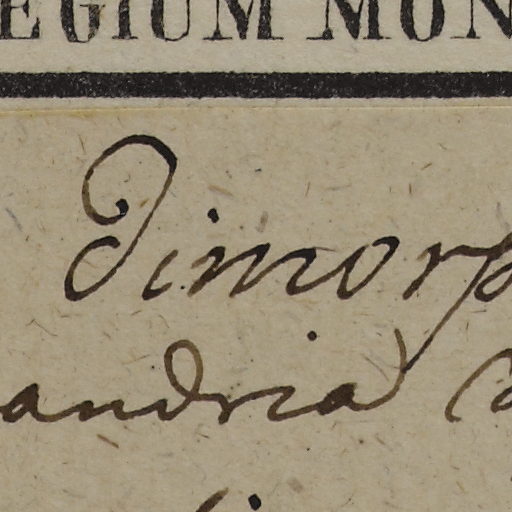 EGIUM MON
Dimorp
andria